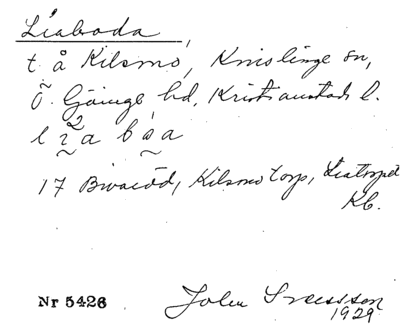 Liaboda
t. å Kilsmo, Knislinge sn,
Ö. Göinge hd, Kristianstads l.
17 Bivaröd, Kilsmo torp, Liatorpet
Kb.
Nr 5426 John Svensson
1929